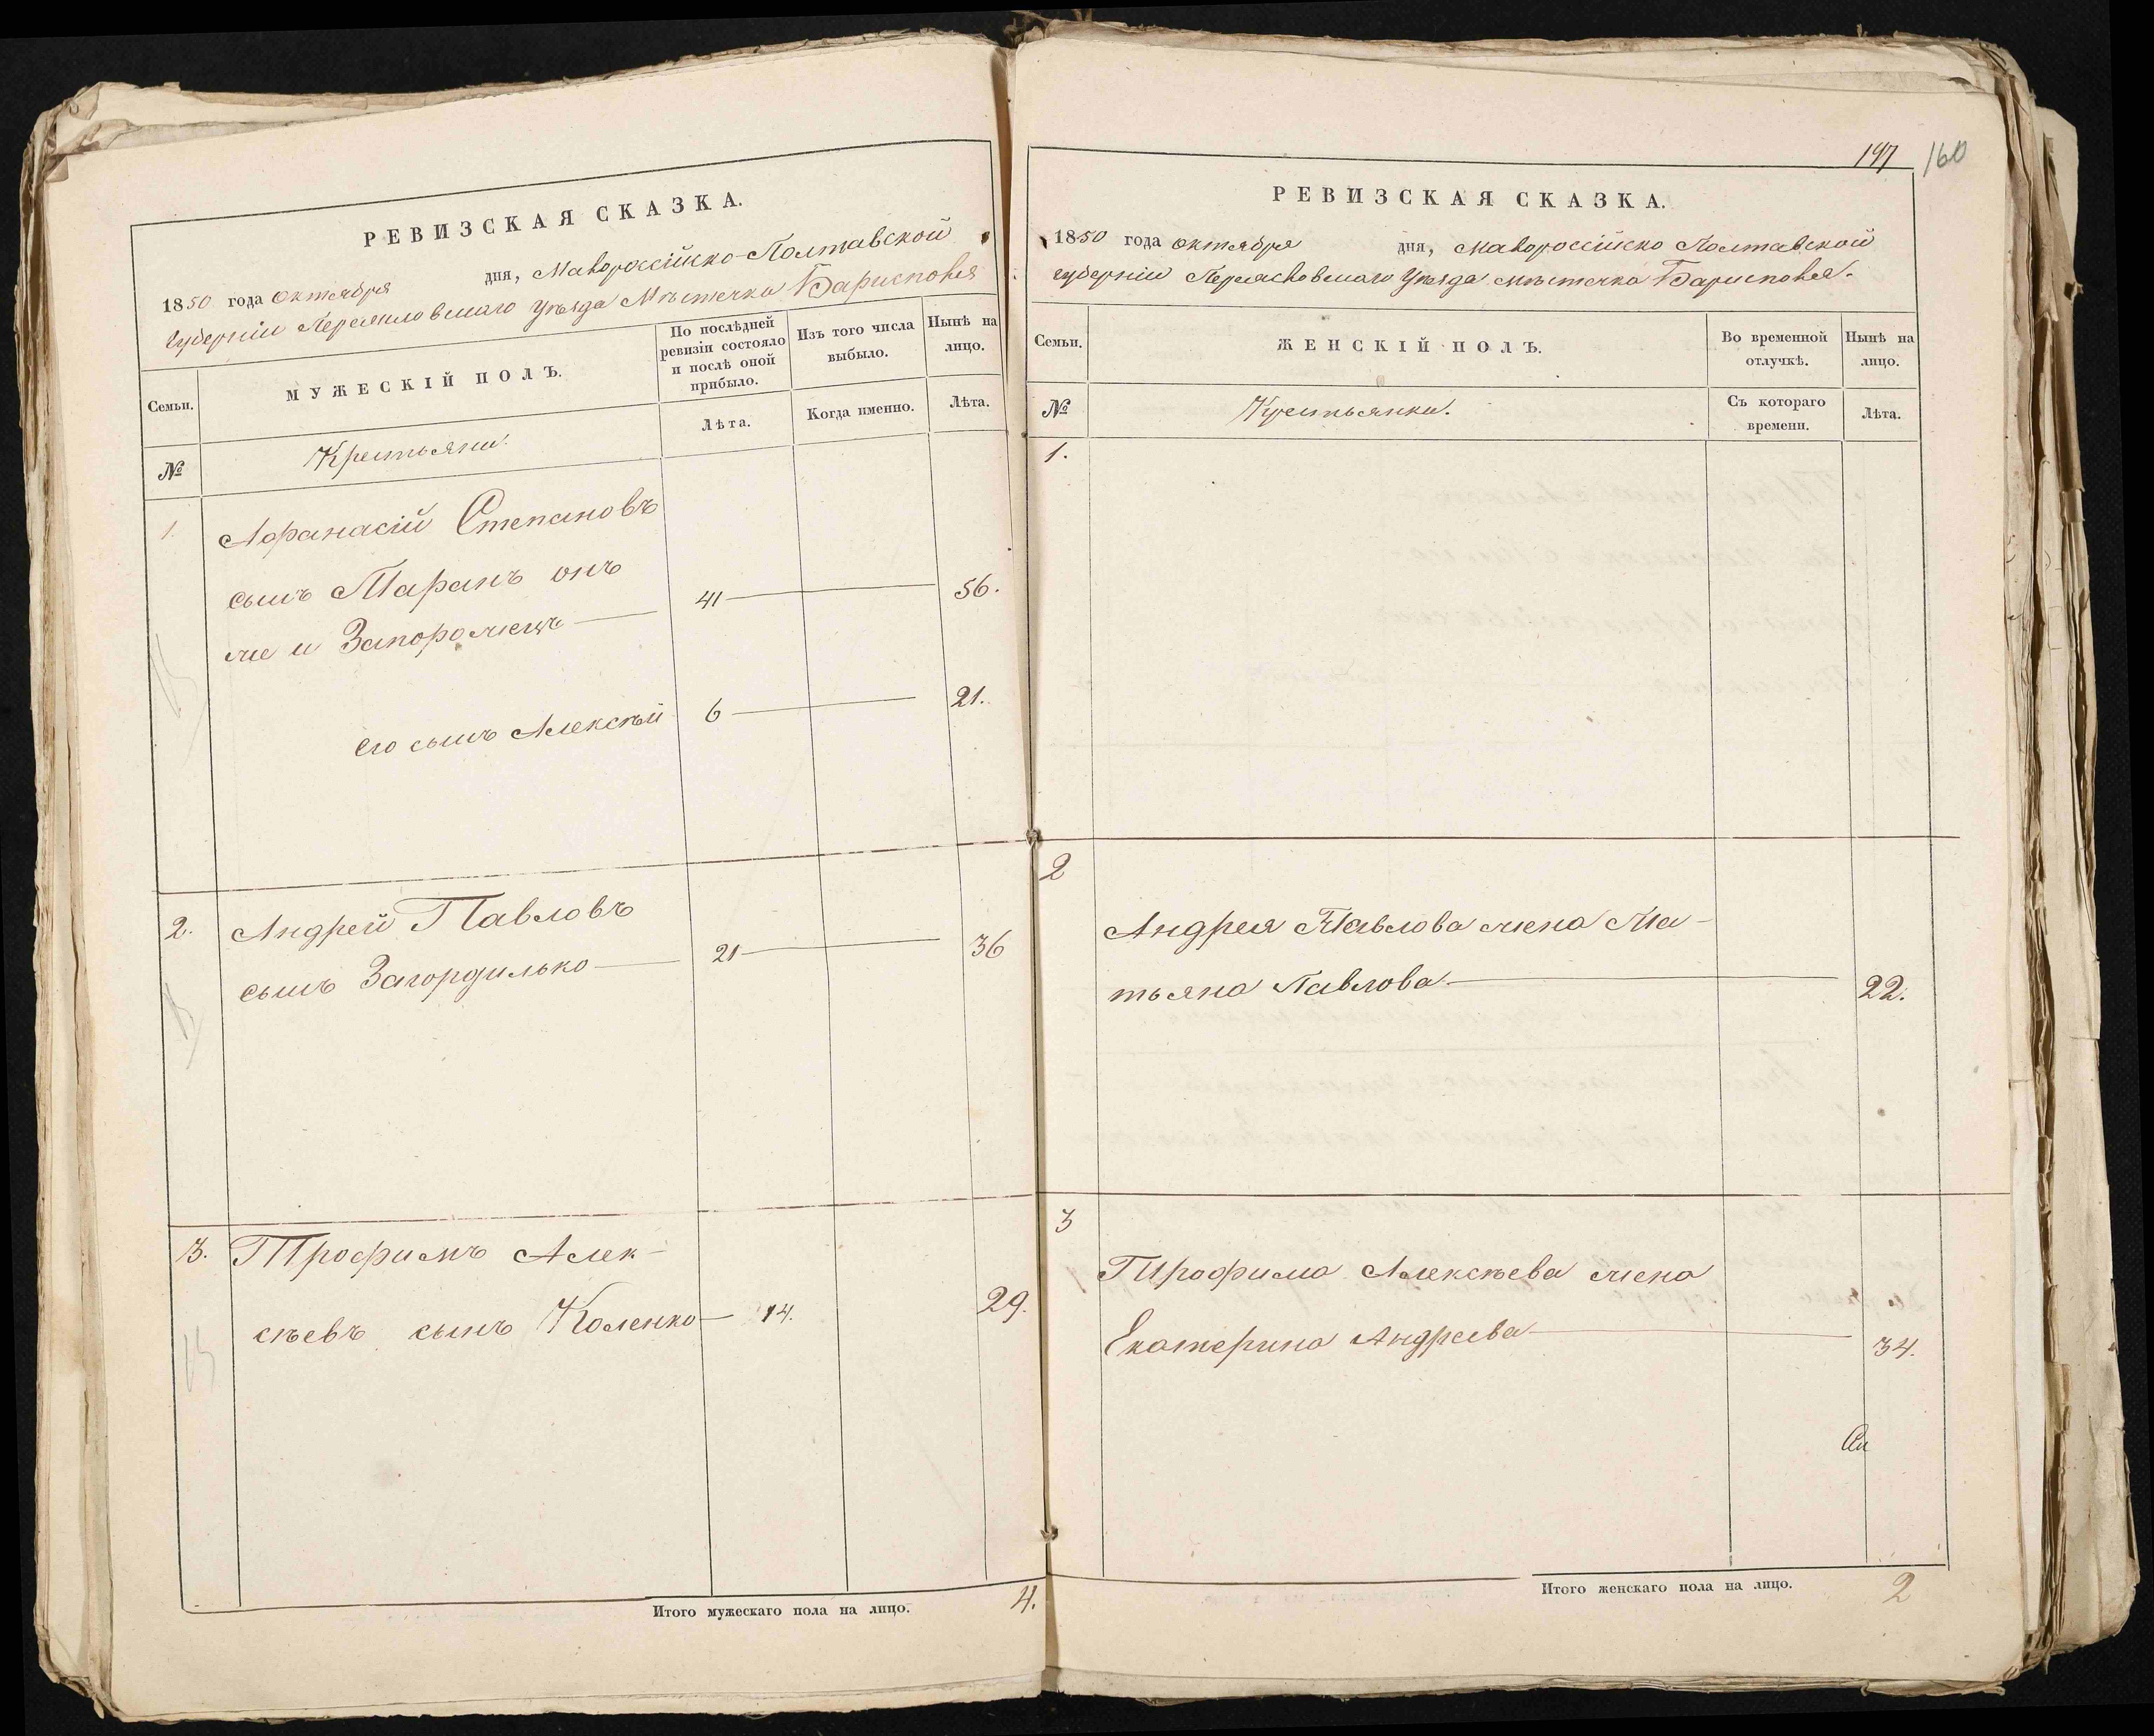 РЕВИЗСКАЯ СКАЗКА.
1850 года октября дня, Малороссійско-Полтавской
губерніи Переяславскаго Уѣзда Мѣстечка Барисполья
Семьи.
МУЖЕСКІЙ ПОЛЪ.
По послѣдней
ревизіи состояло
и послѣ оной
прибыло.
Изъ того числа
выбыло.
Нынѣ на
лицо.
№
Крестьяни.
Лѣта.
Когда именно.
Лѣта.
1. Афанасій Степановъ
сынъ Таранъ онъ
же и Запорожецъ 41 56.
его сынъ Алексѣй 6 21.
2. Андрей Павловъ
сынъ Загордилько 21 36
3. Трофимъ Алек-
сѣевъ сынъ Коленко 14. 29.
Итого мужескаго пола на лицо. 4.
197 160
РЕВИЗСКАЯ СКАЗКА.
1850 года октября дня, Малороссійско Полтавской
губерніи Переясловскаго Уѣзда мѣстечка Барисполья.
Семьи.
ЖЕНСКІЙ ПОЛЪ.
Во временной
отлучкѣ.
Нынѣ на
лицо.
№
Крестьянки.
Съ котораго
времени.
Лѣта.
1.
2
Андрея Павлова жена Та-
тьяна Павлова 22.
3
Трофима Алексѣева жена
Екатерина Андреева 34.
Итого женскаго пола на лицо. 2